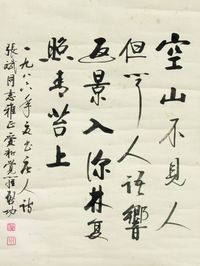 空山不見人
但聞人語響
返景入深林复
照青苔上
一九八六年夏書唐人詩
張斌同志雅正愛新覺羅啟功